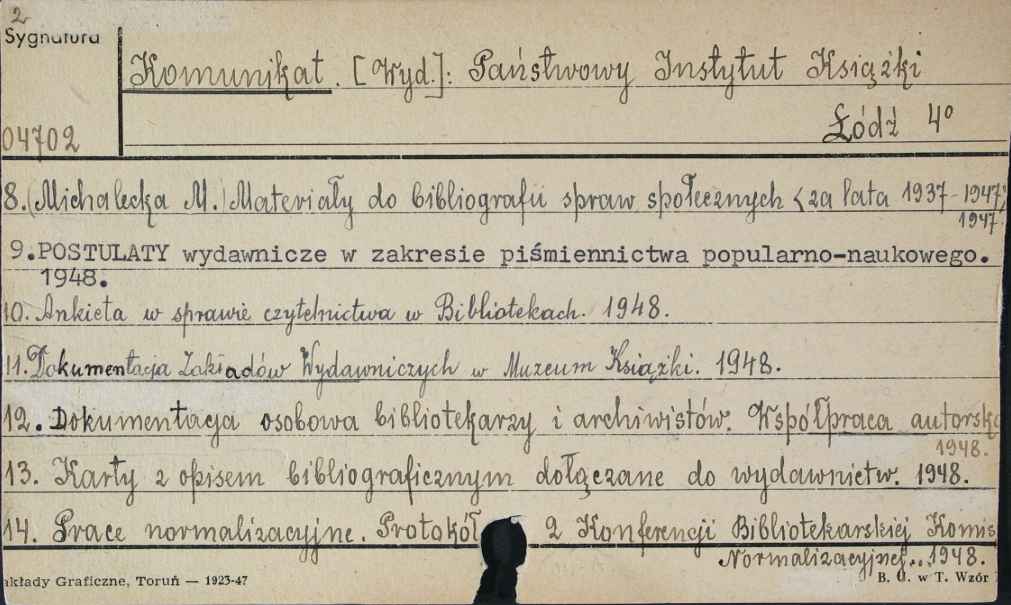 2
Sygnatura
Komunikat. [Wyd.]: Państwowy Instytut Książki
Łódź 4°
04702
8. (Michalecka M.) Materiały do bibliografii spraw społecznych <za lata 1937-1947>
1947.
9. POSTULATY wydawnicze w zakresie piśmiennictwa popularno-naukowego.
1948.
10. Ankieta w sprawie czytelnictwa w Bibliotekach. 1948.
11. Dokumentacja Zakładów Wydawniczych w Muzeum Książki. 1948.
12. Dokumentacja osobowa bibliotekarzy i archiwistów. Współpraca autorska
1948.
13. Karty z opisem bibliograficznym dołączane do wydawnictw. 1948.
14. Prace normalizacyjne. Protokół 2 Konferencji Bibliotekarskiej Komis
Normalizacyjnej... 1948.
akłady Graficzne, Toruń — 1923-47
B. U. w T. Wzór